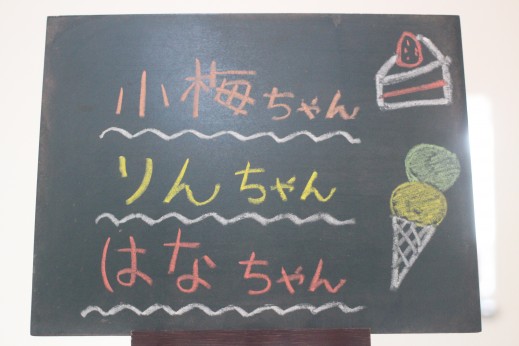 小梅ちゃん
りんちゃん
はなちゃん